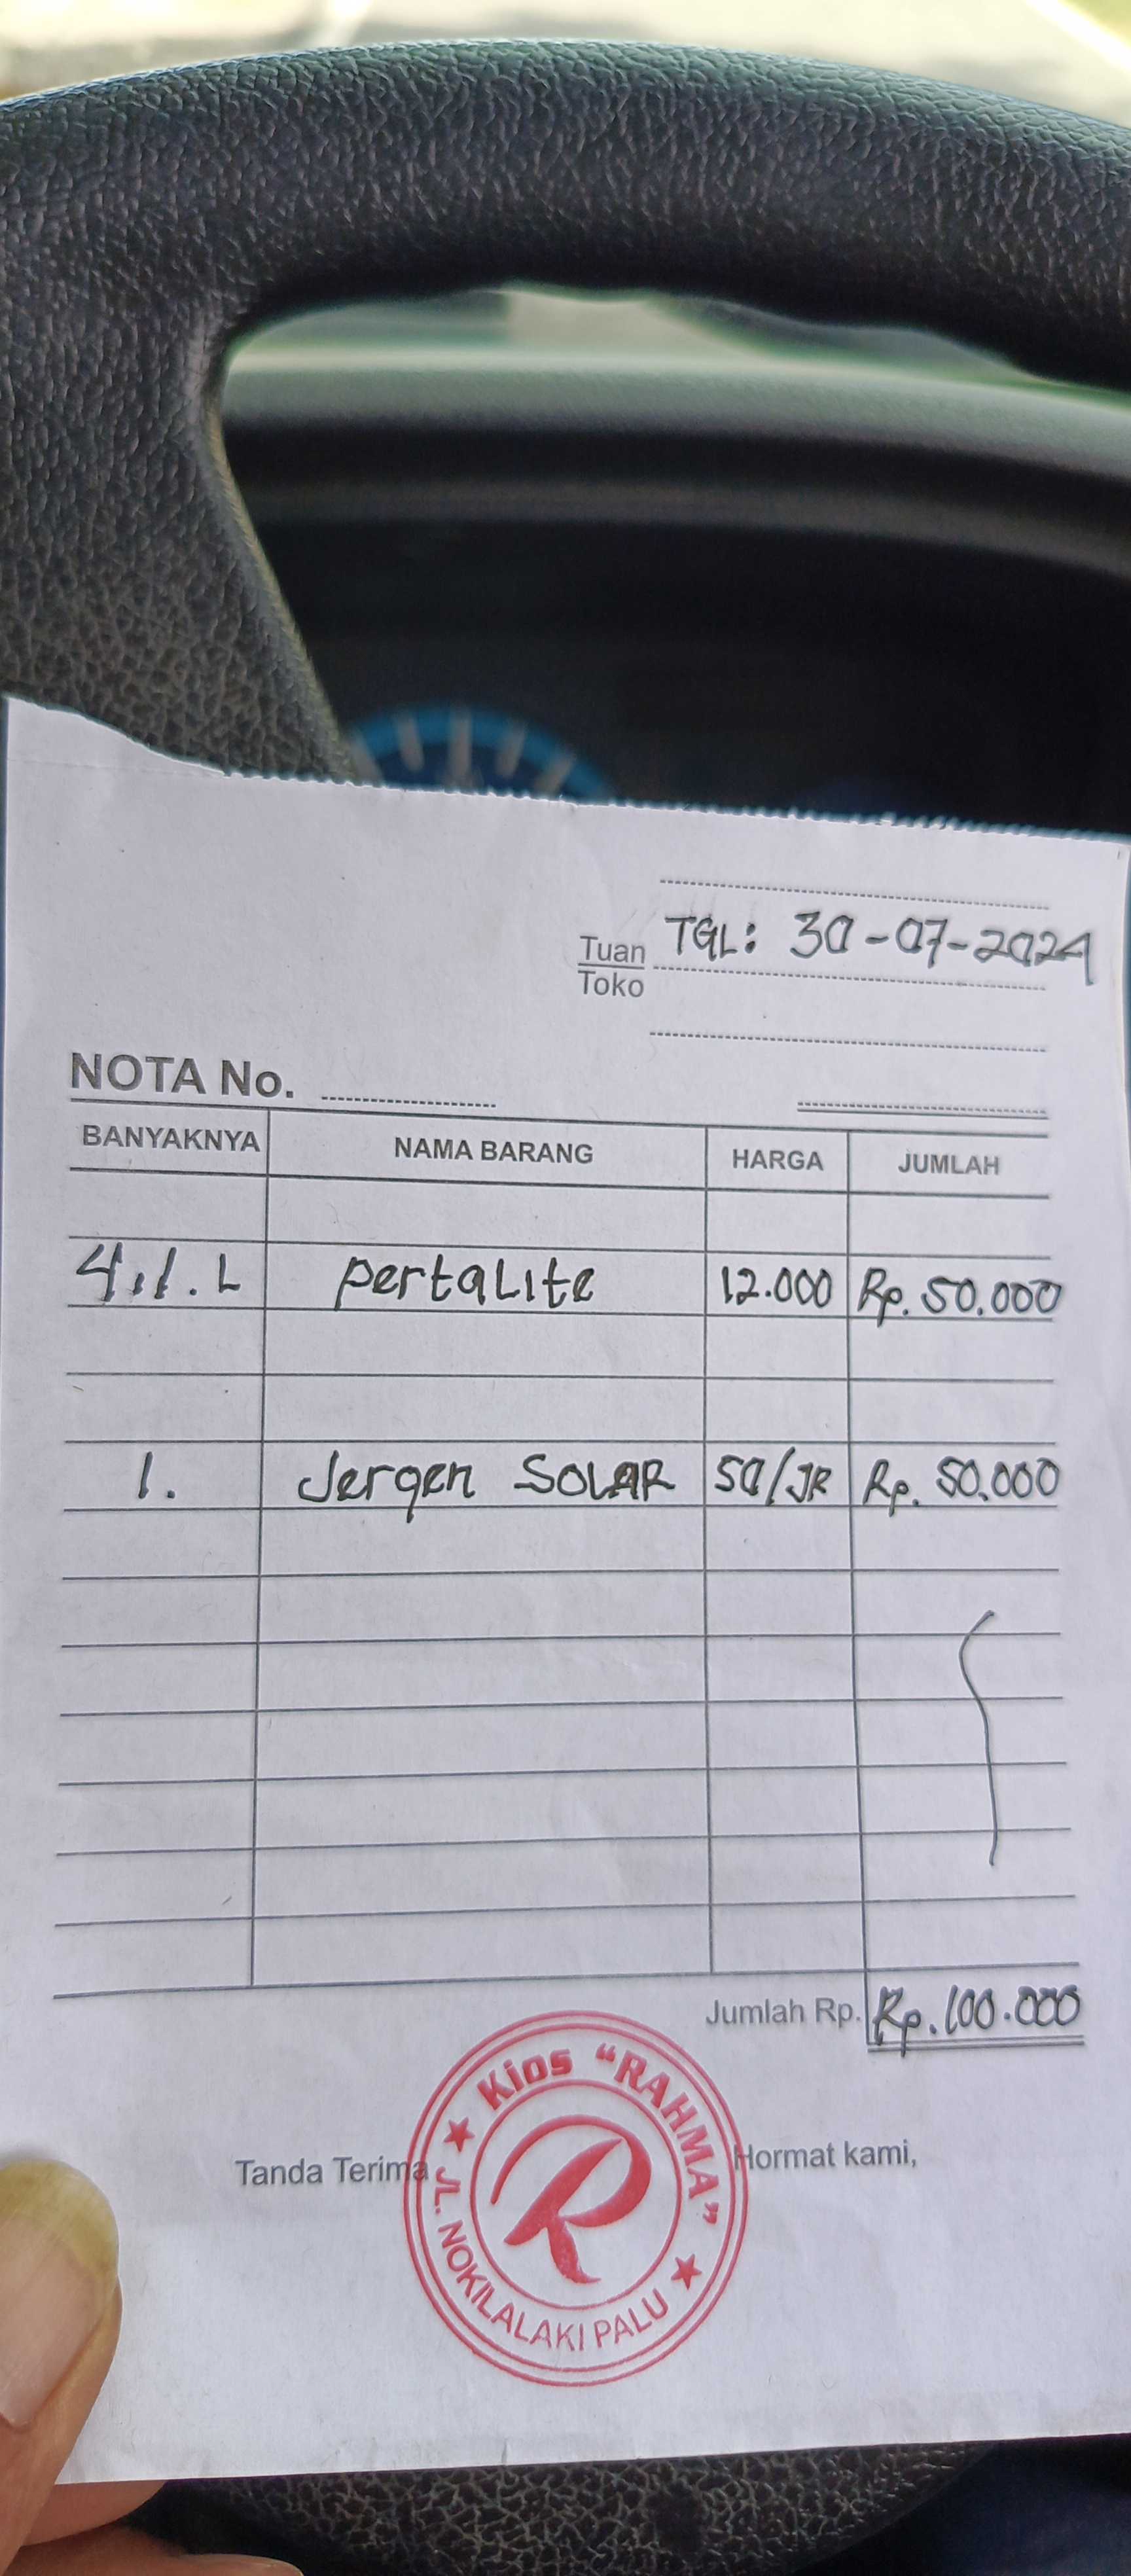 TGL: 30-07-2024
Tuan
Toko
NOTA No.
BANYAKNYA NAMA BARANG HARGA JUMLAH
4,1. L pertaLite 12.000 Rp. 50.000
1. Jergen SOLAR 50/JR Rp. 50.000
Jumlah Rp. Rp. 100.000
Tanda Terima
Hormat kami,
Kios "RAHMA"
R
JL. NOKILALAKI PALU